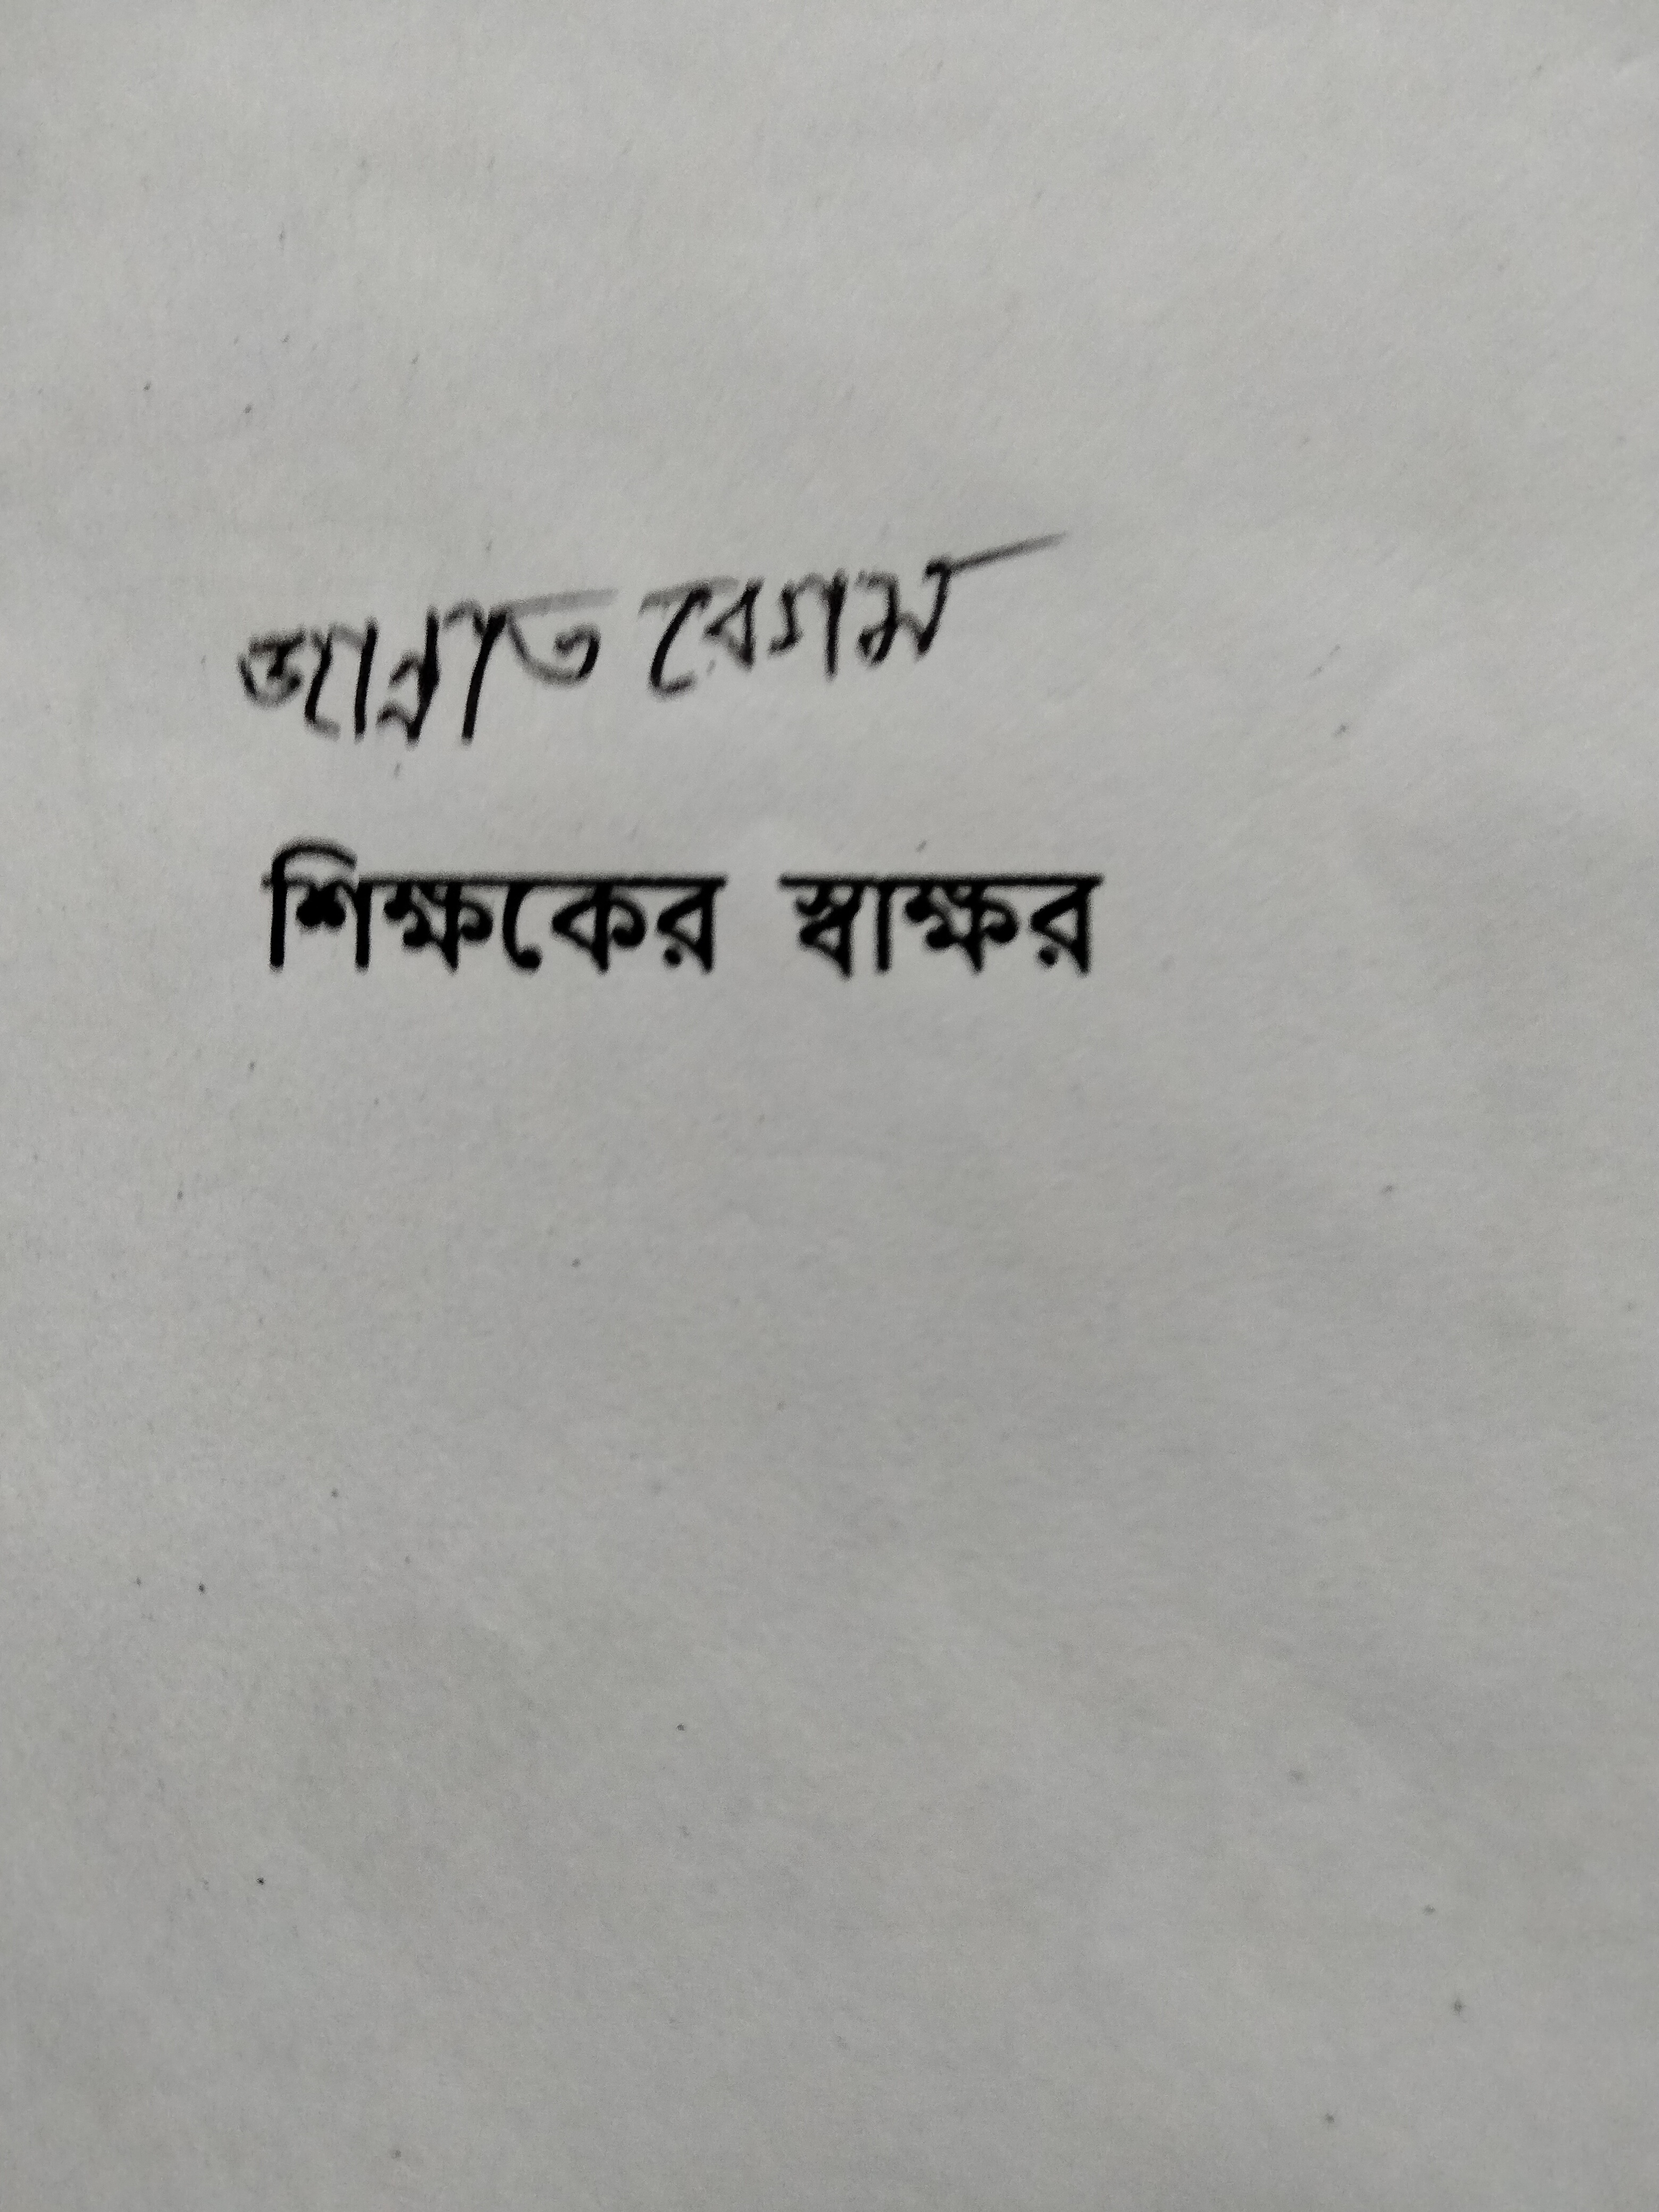 জান্নাত বেগম
শিক্ষকের স্বাক্ষর